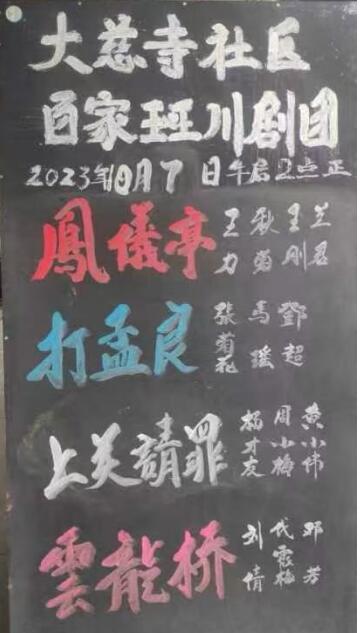 大慈寺社区
百家班川剧团
2023年10月7日午后2点正
鳳儀亭
王力
王刚
兰君
打孟良
張菊花
馬瑶
鄧超
上关請罪
杨才友
周小梅
黄小伟
雲龍桥
刘倩
代霞梅
邓芳